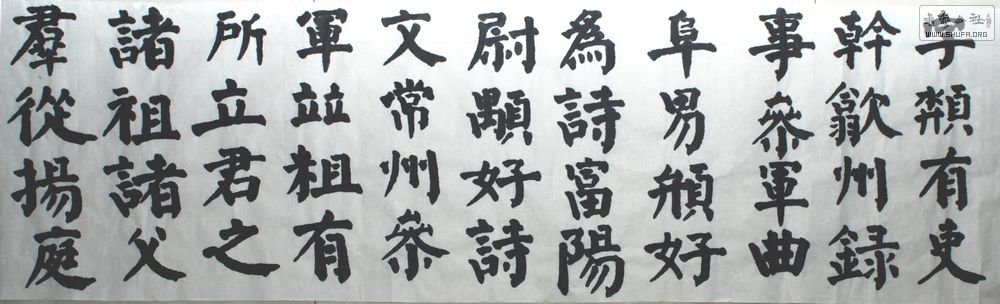 有吏
幹歙州録
事叅軍曲
阜男好
為詩富陽
尉顒好詩
文常州叅
軍並粗有
所立君之
諸祖諸父
羣從揚庭
WWW.SHUFA.ORG